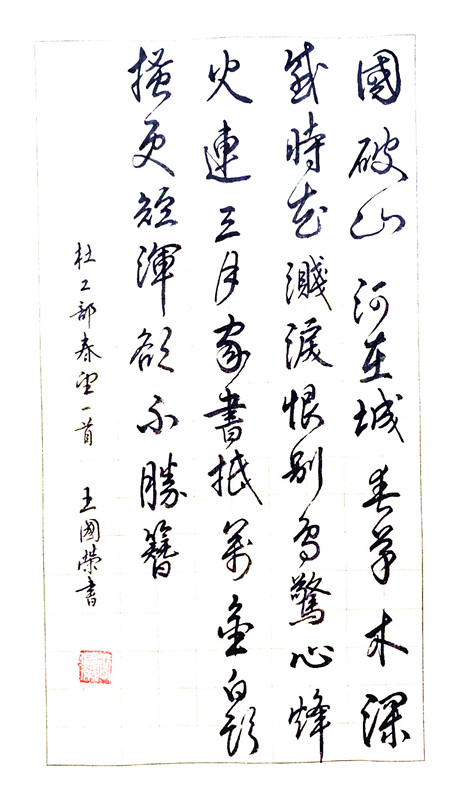 國破山河在城春草木深
感時花濺淚恨別鳥驚心烽
火連三月家書抵萬金白頭
搔更短渾欲不勝簪
杜工部春望一首 王國榮書